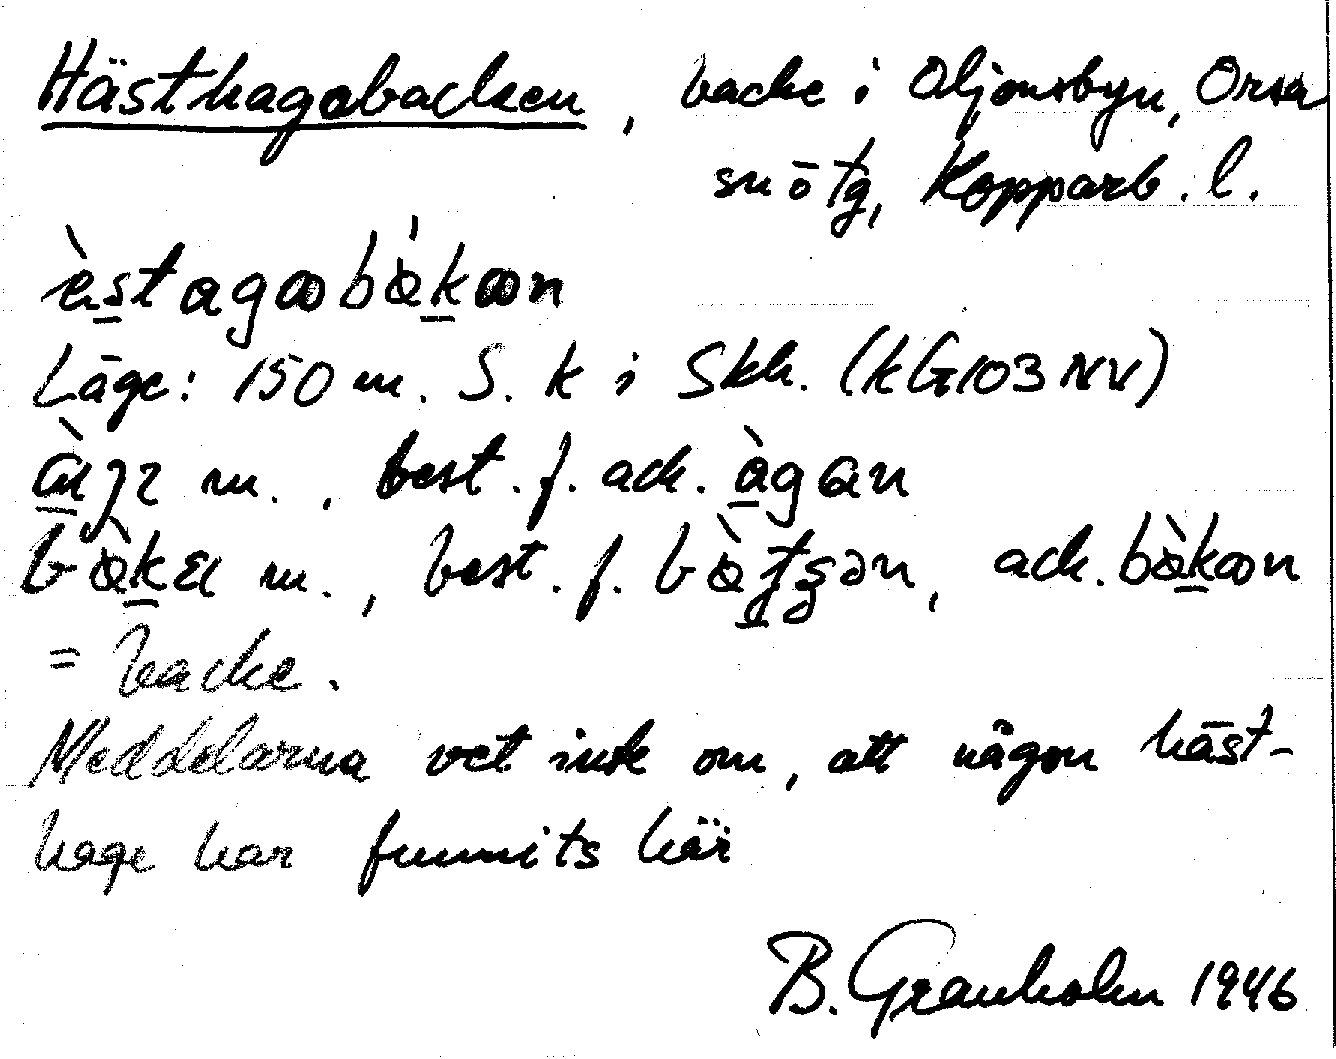 Hästhagabacken, backe i Oljonsbyn, Orsa
sn ö tg, Kopparb. l.
Läge: 150 m. S. k i Skh. (kG103NV)
m., best. f. ack. àgan
m., best. f. ack.
= backe.
Meddelarna vet inte om, att någon häst-
hage har funnits här
B. Granholm 1946